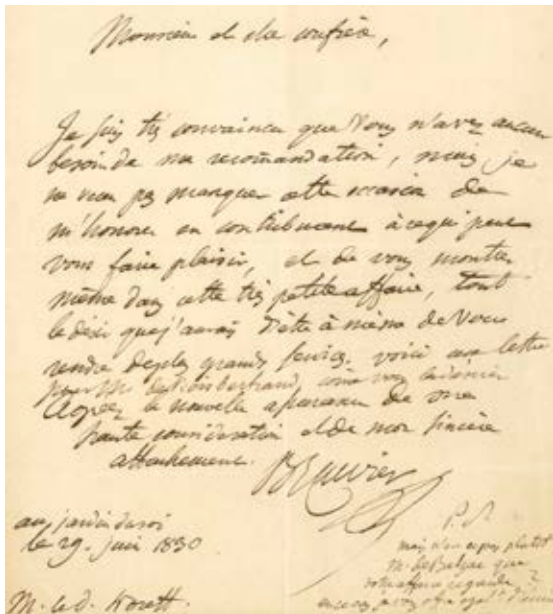 Monsieur et cher confrère,
Je suis très convaincu que vous n'avez aucun
besoin de ma recomandation, mais je
ne veux pas manquer cette occasion de
m'honorer en contribuant à ce qui peut
vous faire plaisir, et de vous montrer
même dans cette très petite affaire, tout
le désir que j'aurais d'être à même de vous
rendre de plus grands services. voici une lettre
pour Mr Bertrand, come vous
Agréez la nouvelle assurance de ma
haute considération et de mon sincère
attachement.
B Cuvier
au jardin du roi
le 29. juin 1830
M. le d.
P. S.
mais plutôt
M. de que
votre affaire regarde ?